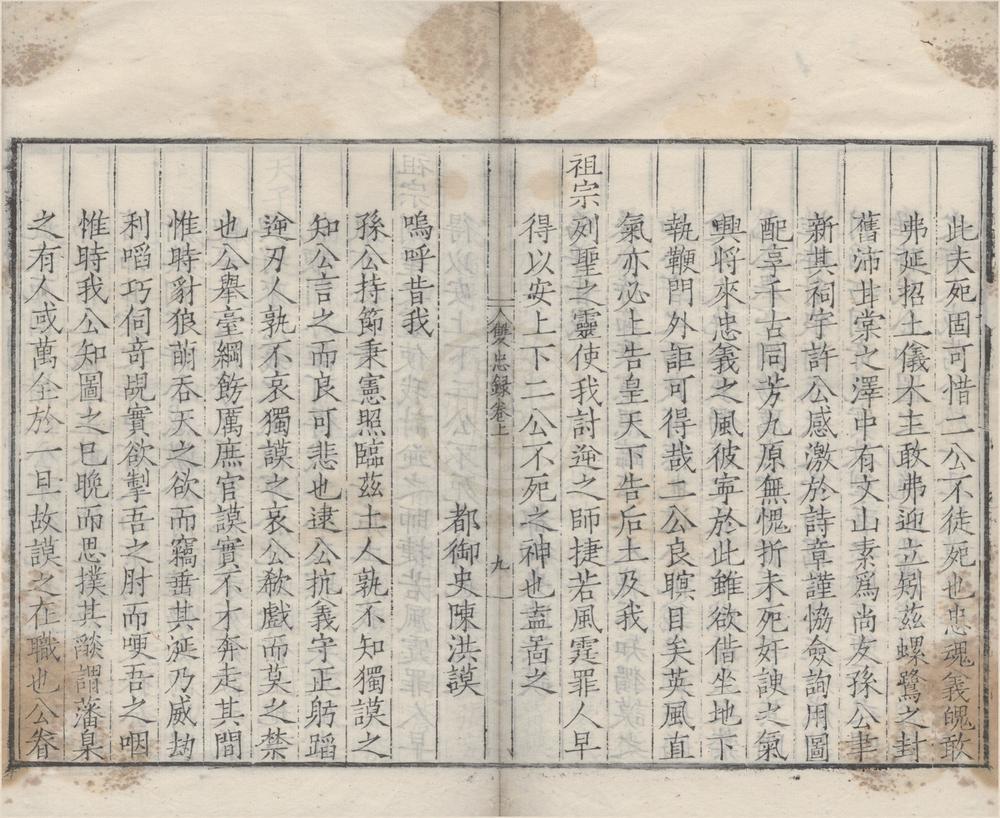 此夫死固可惜二公不徒死也忠魂義魄敢
弗延招土儀木主敢弗迎立矧茲螺鷺之封
舊沛甘棠之澤中有文山素爲尚友孫公聿
新其祠宇許公感激於詩章謹恊僉詢用圖
配享千古同芳九原無愧折未死奸諛之氣
興將來忠義之風彼寧於此雖欲偕坐地下
執鞭門外詎可得哉二公良瞑目矣英風直
氣亦必上告皇天下告后土及我
祖宗列聖之靈使我討逆之師捷若風霆罪人早
得以安上下二公不死之神也盍啚之
雙忠録卷上
九
都御史陳洪謨
嗚呼昔我
孫公持節秉憲照臨茲土人孰不知獨謨之
知公言之而良可悲也逮公抗義守正躬蹈
逆刃人孰不哀獨謨之哀公欷戲而莫之禁
也公舉臺綱飭厲庶官謨實不才奔走其間
惟時豺狼萌吞天之欲而竊垂其涎乃威劫
利啗巧伺奇覘實欲掣吾之肘而哽吾之咽
惟時我公知圖之已晚而思撲其燄謂藩臬
之有人或萬全於一旦故謨之在職也公眷